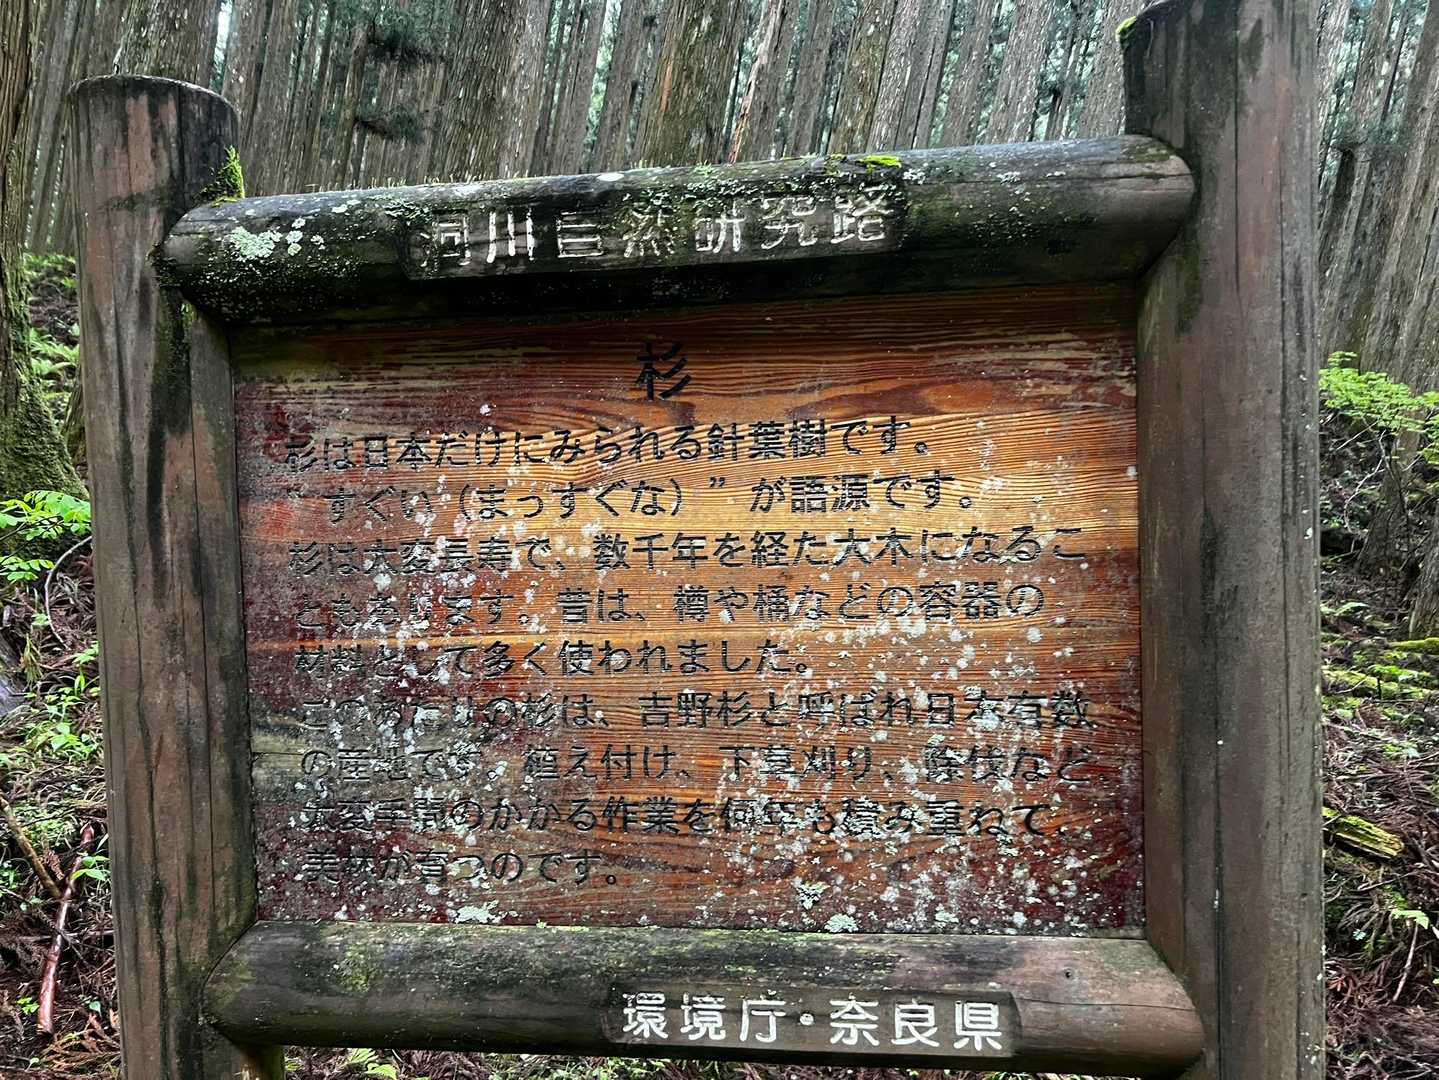 河川自然研究路
杉
杉は日本だけにみられる針葉樹です。
“すぐい（まっすぐな）”が語源です。
杉は大変長寿で、数千年を経た大木になるこ
ともあります。昔は、樽や桶などの容器の
材料として多く使われました。
このあたりの杉は、吉野杉と呼ばれ日本有数
の産地です。植え付け、下草刈り、除伐など
大変手間のかかる作業を何年も積み重ねて、
美林が育つのです。
環境庁・奈良県